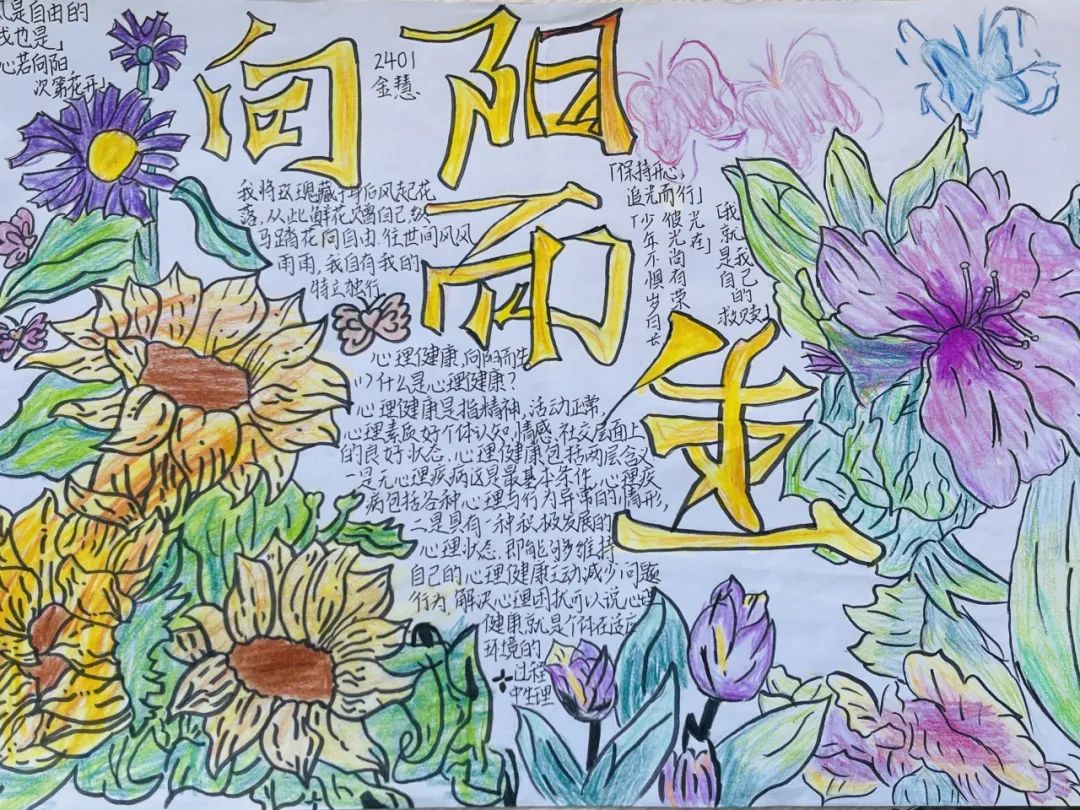 风是自由的
我也是」
心若向阳
次第花开」
向阳而生
2401
金慧
我将玫瑰藏于身后风起花
落,从此鲜花赠自己,纵
马踏花向自由.往世间风风
雨雨,我自有我的
特立独行
「保持开心,
追光而行」
「少年不惧岁月长
彼光尚有荣
光在」
「我就是我自己的
救赎」
心理健康,向阳而生
(1)什么是心理健康?
心理健康是指精神,活动正常,
心理素质好个体认知,情感,社交层面上
的良好状态.心理健康包括两层含义
一是无心理疾病这是最基本条件,心理疾
病包括各种心理与行为异常的情形,
二是具有一种积极发展的
心理状态.即能够维持
自己的心理健康主动减少问题
行为,解决心理困扰可以说心理
健康就是个体在适应
环境的
过程
中生理